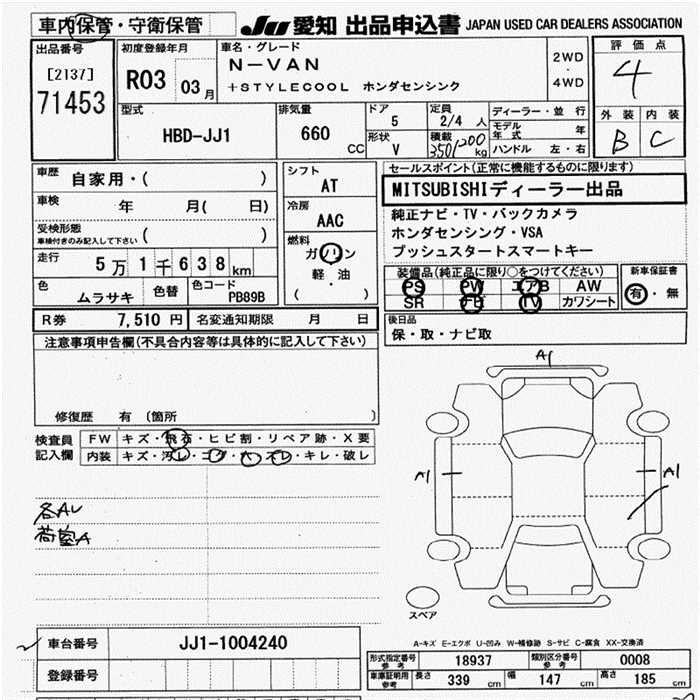 車内保管・守衛保管 JU 愛知 出品申込書 JAPAN USED CAR DEALERS ASSOCIATION
出品番号 [2137] 71453
初度登録年月 R03 03月
車名・グレード
N-VAN
+STYLECOOL ホンダセンシンク
2WD・4WD
評価点 4
外装 B 内装 C
型式 HBD-JJ1
排気量 660 CC
ドア 5
形状 V
定員 2/4 人
積載 350/200 kg
ディーラー・並行
モデル年式 年
ハンドル 左・右
車歴 自家用・( )
車検 年 月( 日)
受検形態 ( )
車検付きのみ記入して下さい
走行 5万1千638km
色 ムラサキ 色替 色コード PB89B
シフト AT
冷房 AAC
燃料 ガソリン
軽・油
( )
R券 7,510 円 名変通知期限 月 日
セールスポイント(正常に機能するものに限ります)
MITSUBISHIディーラー出品
純正ナビ・TV・バックカメラ
ホンダセンシング・VSA
プッシュスタートスマートキー
装備品(純正品に限り○をつけてください)
PS PW エアB AW
SR ナビ TV カワシート
新車保証書
有・無
後日品
保・取・ナビ取
注意事項申告欄(不具合内容等は具体的に記入して下さい)
修復歴 有 (箇所 )
検査員記入欄
FW キズ・飛石・ヒビ割・リペア跡・X要
内装 キズ・汚レ・コゲ・穴・スレ・キレ・破レ
各AU
荷室A
A1
A1
A1
スペア
車台番号 JJ1-1004240
登録番号
A-キズ E-エクボ U-凹み W-補修跡 S-サビ C-腐食 XX-交換済
形式指定番号 参考 18937 類別区分番号 参考 0008
車庫証明用 参考 長さ 339 cm 幅 147 cm 高さ 185 cm